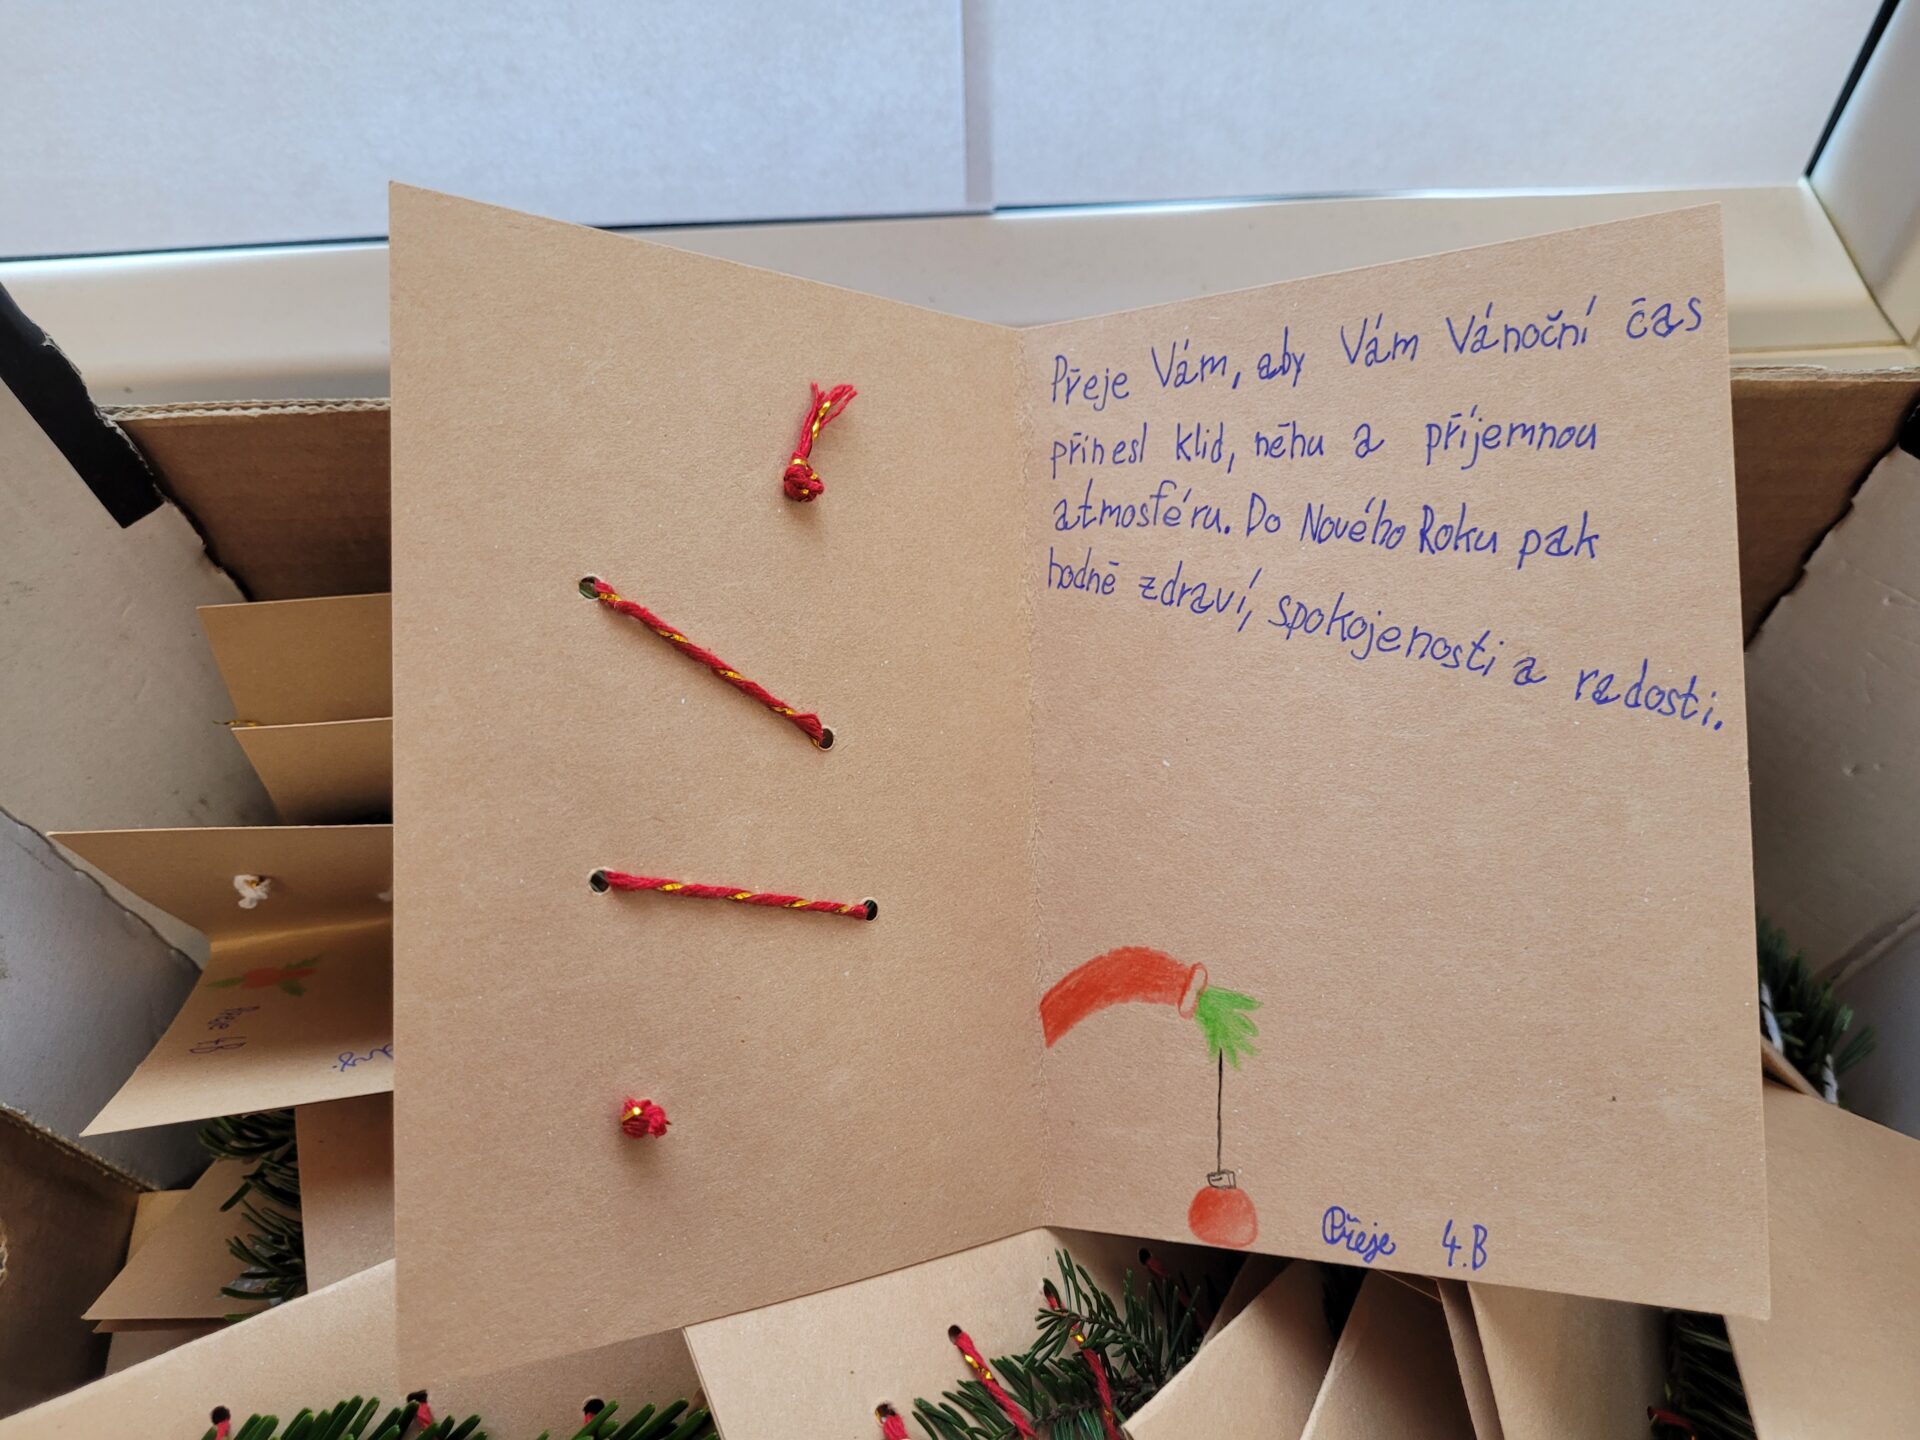 Přeje Vám, aby Vám Vánoční čas
přinesl klid, něhu a příjemnou
atmosféru. Do Nového Roku pak
hodně zdraví, spokojenosti a radosti.
Přeje 4.B
Přeje 4B